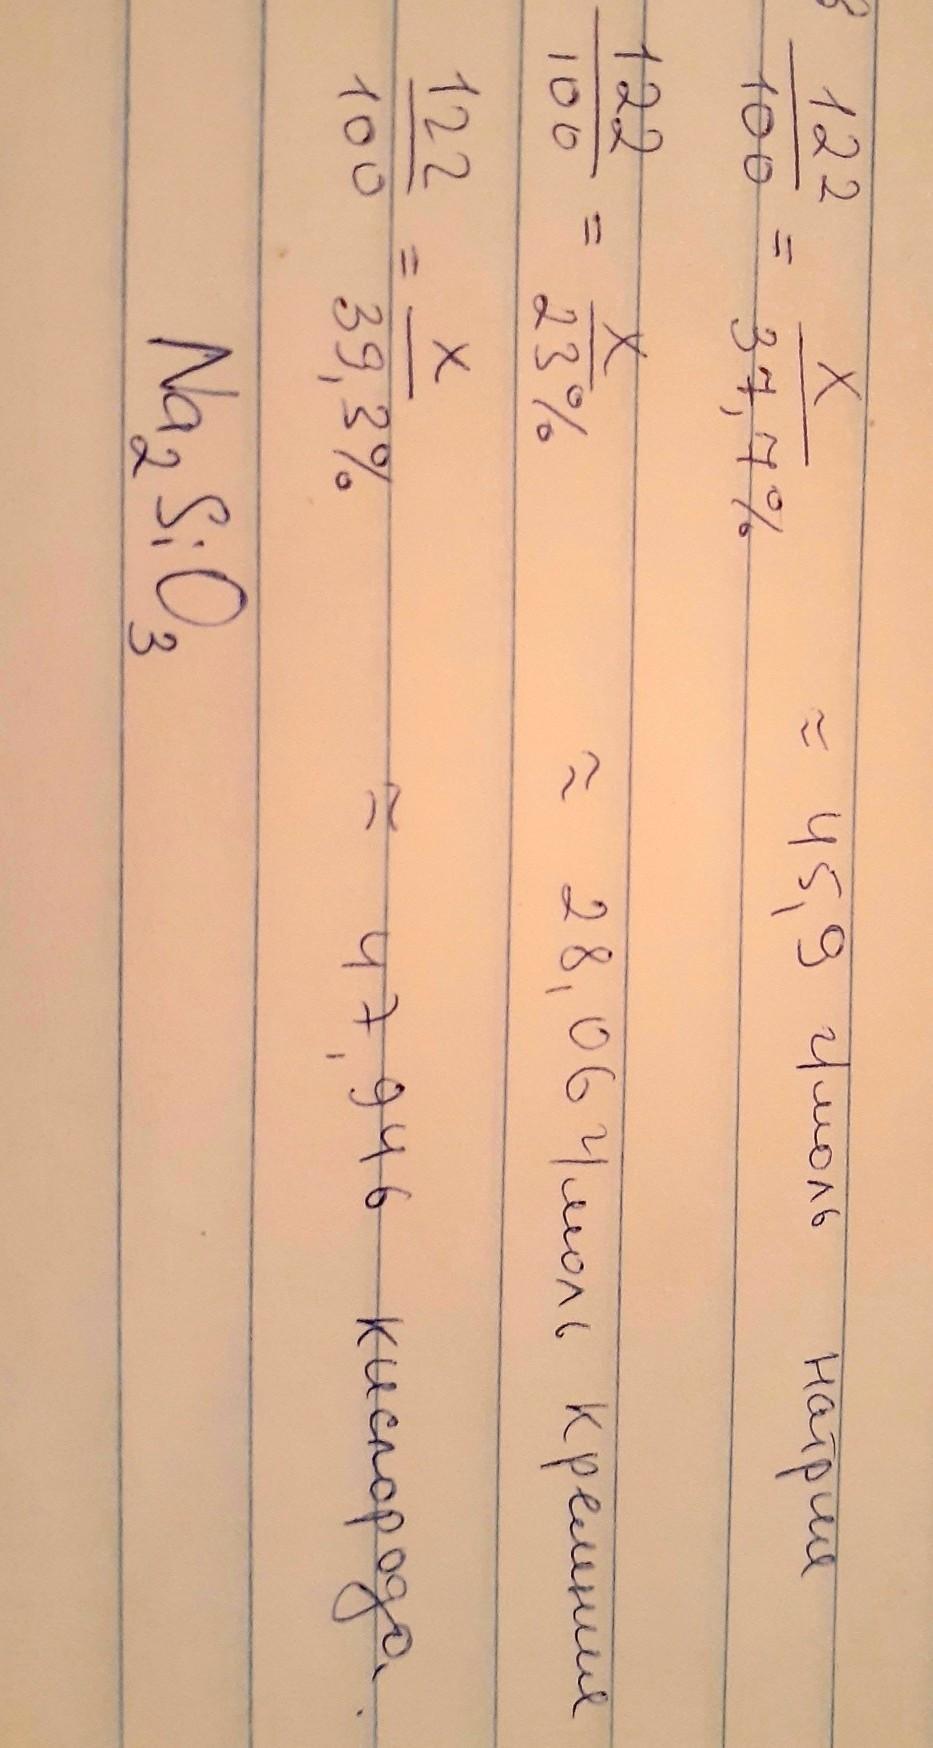 122/100 = x/37,7% ≈ 45,9 г/моль натрия
122/100 = x/23% ≈ 28,06 г/моль кремния
122/100 = x/39,3% ≈ 47,946 кислорода.
Na₂SiO₃